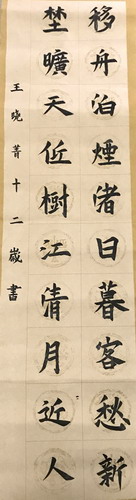 移舟泊煙渚日暮客愁新
埜曠天低樹江清月近人
王晓菁十二歲書